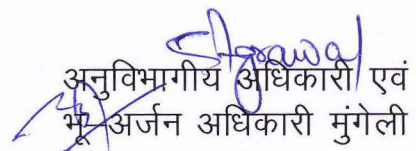 अनुविभागीय अधिकारी एवं
भू-अर्जन अधिकारी मुंगेली